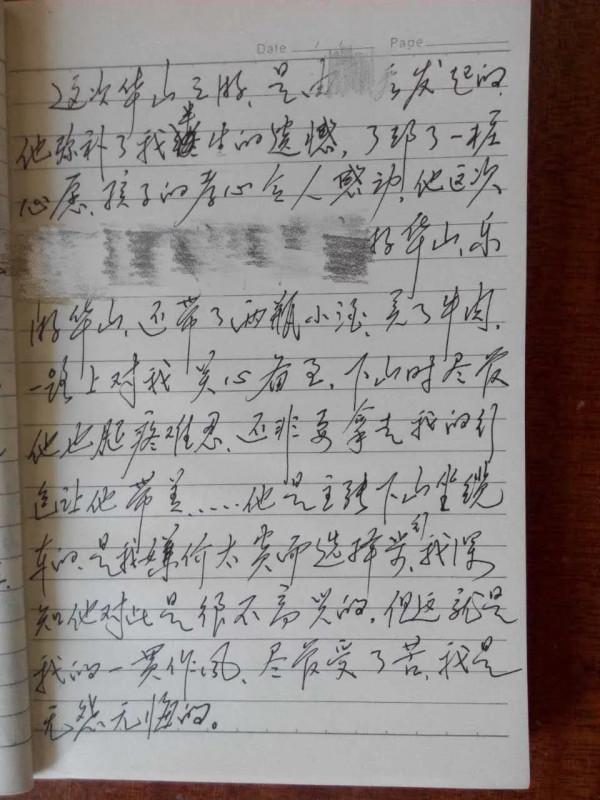 Date Page
这次华山之游,是由 发起的,
他弥补了我半生的遗憾,了却了一桩
心愿,孩子的孝心令人感动,他这次
游华山,乐
游华山,还带了两瓶小酒,买了牛肉,
一路上对我关心备至,下山时尽管
他也腿疼难忍,还非要拿走我的行
包让他带着……他是主张下山坐缆
车的,是我嫌价太贵而选择步行,我深
知他对此是很不高兴的,但这就是
我的一贯作风,尽管受了苦,我是
无怨无悔的。